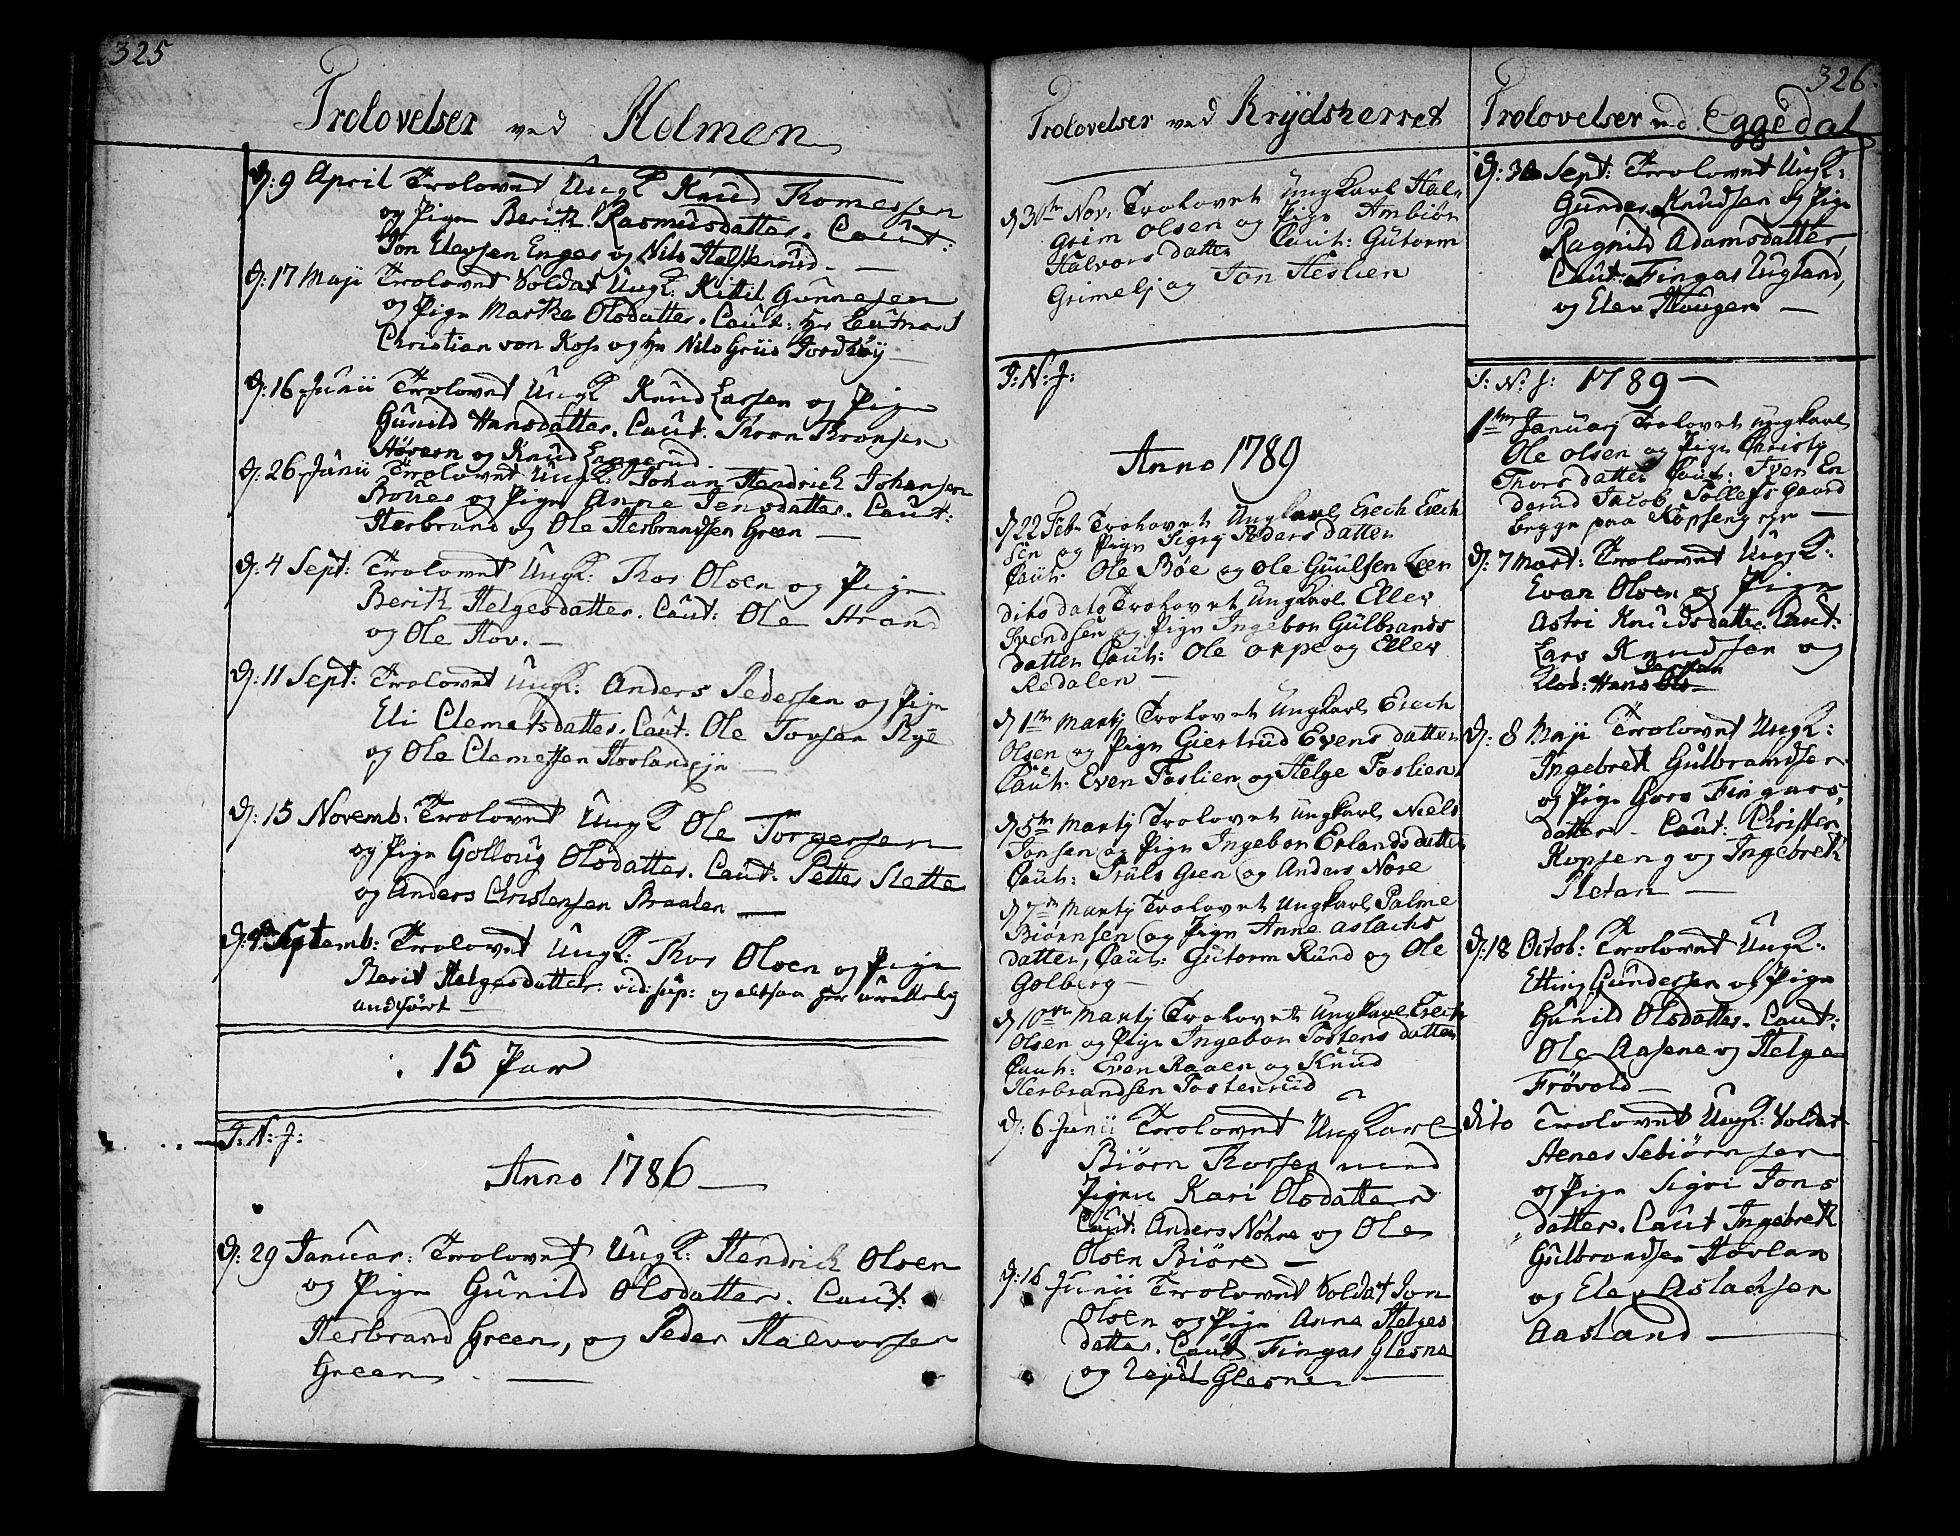 325
Trolovelser ved Holmen
D: 9 April Trolovet Ungk Knud Thomessen
og Pige Berith Rasmusdatter. Caut:
Jon Elevsen Enger og Nils Halstenrud. —
D: 17 Maji Trolovet Soldat Ungk: Kittil Gunnesen
og Pige Marthe Olsdatter. Caut: Hr Leutnant
Christian von Koss og Hr Nils Griis Tordhøy
D: 16 Junii Trolovet Ungk Knud Larsen og Pige
Gunild Hansdatter. Caut. Thron Thronsen
Høvern og Knud Langerud.
D: 26 Junii Trolovet Ungk: Johan Hendrich Johansen
og Pige Anne Jensdatter. Caut:
Herbrand og Ole Herbrandsen Green —
D: 4 Sept: Trolovet Ungk: Thor Olsen og Pige
Berith Helgesdatter. Caut: Ole Strand
og Ole Hov. —
D: 11 Sept: Trolovet Ungk: Anders Pedersen og Pige
Eli Clemetsdatter. Caut: Ole Torsen Rye
og Ole Clemetsen Hovlandeje —
D: 15 Novemb: Trolovet Ungk Ole Torgersen
og Pige Golloug Olsdatter. Caut: Petter Slette
og Anders Christensen Braaten —
D: Septemb: Trolovet Ungk: Thor Olsen og Pige
Berit Helgesdatter. vid: sup: og altsaa her urettelig
andført —
15 Par
I: N: J:
Anno 1786 —
D: 29 Januar: Trolovet Ungk: Hendrich Olsen
og Pige Gunild Olsdatter. Caut:
Herbrand Green, og Peder Halvorsen
Green. —
Trolovelser ved Krydsherret
D 3te Nov. Trolovet Ungkarl Hal
Grim Olsen og Pige Ambiør
Halvorsdatter Caut: Gutorm
Grimelj og Jon Heslien
I: N: J:
Anno 1789
D 22 Feb. Trolovet Ungkarl Erich Erich
sen og Pige Sigrj Pedersdatter
Caut: Ole Bøe og Ole Guulsen Leen
dito dato Trolovet Ungkarl Ellev
Svendsen og Pige Ingebor Gulbrands
datter Caut: Ole orpe og Ellev
Redalen —
D 1te Martj Trolovet Ungkarl Erich
Olsen og Pige Giertrud Evensdatter
Caut: Even Foslien og Helge Foslien
D 5te Martj Trolovet Ungkarl Niels
Jonsen og Pige Ingebor Erlandsdatter
Caut: Truls Gien og Anders Nore
D 7de Martj Trolovet Ungkarl Palme
Biørnsen og Pige Anne Aslachs
datter, Caut: Gutorm Rund og Ole
Golberg —
D 10de Martj Trolovet Ungkarl Erich
Olsen og Pige Ingebor Tostensdatter
Caut: Even Raaen og Knud
Herbrandsen Tostenrud
D: 6 Junii Trolovet Ungkarl
Biørn Thorsen med
Pigen Kari Olsdatter
Caut: Anders Nohre og Ole
Olsen Biøre —
D: 16 Junii Trolovet Soldat Jon
Olsen og Pige Anne Helges
datter. Caut Fingar Glesne
og Glesne —
326
Trolovelser ved Eggedal
D: 30 Sept: Trolovet Ungk:
Gunder Knudsen og Pige
Ragnild Adamsdatter,
Caut. Fingar Ugland,
og Elev Hougen —
I: N: J: 1789 —
1te Januarj Trolovet Ungkarl
Ole Olsen og Pige Christj
Thorsdatter Caut: Iver En
derud Jacob Tollefsgaard
begge paa Kopseng eje —
D: 7 Mart: Trolovet Ungk:
Even Olsen og Pige
Astri Knudsdatter. Caut:
Lars Knudsen og
Hans Ols
D: 8 Maji Trolovet Ungk:
Ingebret Gulbrandsen
og Pige Goro Fingars
datter. Caut: Christen
Kopseng og Ingebret
Sletan —
D: 18 Octob: Trolovet Ungk.
Etting Gundersen og Pige
Gunild Olsdatter. Caut:
Ole Aasene og Helge
Frøvold —
dito Trolovet Ungk: Soldat
Aener Sebiørnsen
og Pige Sigri Jons
datter. Caut Ingebret
Gulbrandsen Hovlan
og Elev Aslachsen
Aasland —